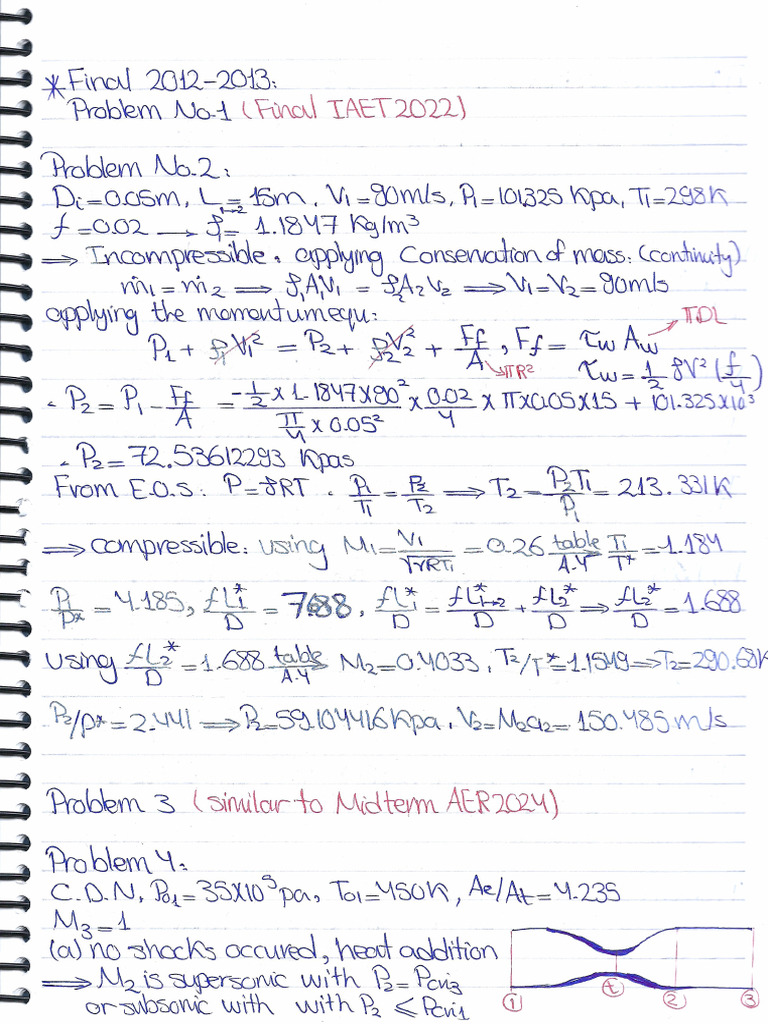 *Final 2012-2013:
Problem No.1 (Final IAET2022)
Problem No.2:
Di=0.05m, L1→2=15m, V1=90m/s, P1=101.325 Kpa, T1=298K
f=0.02 → ρ1= 1.1847 Kg/m³
⇒ Incompressible. applying Conservation of mass: (continuity)
ṁ1=ṁ2 ⇒ ρ1A1V1 = ρ2A2V2 ⇒ V1=V2=90m/s
applying the momentum equ:
P1 + ρ1V1² = P2 + ρ2V2² + Ff/A , Ff = τw Aw → πDL
→ πR² τw = 1/2 ρV² (f/4)
∴ P2 = P1 - Ff/A = (-1/2 x 1.1847x90²)/(π/4 x 0.05²) x 0.02/4 x πx0.05x15 + 101.325x10³
∴ P2=72.53612293 Kpas
From E.O.S: P=ρRT . P1/T1 = P2/T2 ⇒ T2 = P2T1/P1 = 213.331K
⇒ compressible: using M1= V1/√γRT1 = 0.26 table A.4 → T1/T* =1.184
P1/P* =4.185, fL1*/D = 7.688, fL1*/D = fL1→2*/D + fL2*/D ⇒ fL2*/D =1.688
using fL2*/D =1.688 table A.4 → M2=0.4033, T2/T*=1.1549⇒T2=290.68K
P2/P*=2.441 ⇒ P2=59.104416Kpa. V2=M2a2= 150.485m/s
Problem 3 (similar to Midterm AER2024)
Problem 4:
C.D.N, P01=35x10⁵pa, T01=450K, Ae/At=4.235
M3=1
(a) no shocks occured, heat addition
⇒ M2 is supersonic with P2=Pcri3
or subsonic with with P2 ≤ Pcri1
① t ② ③